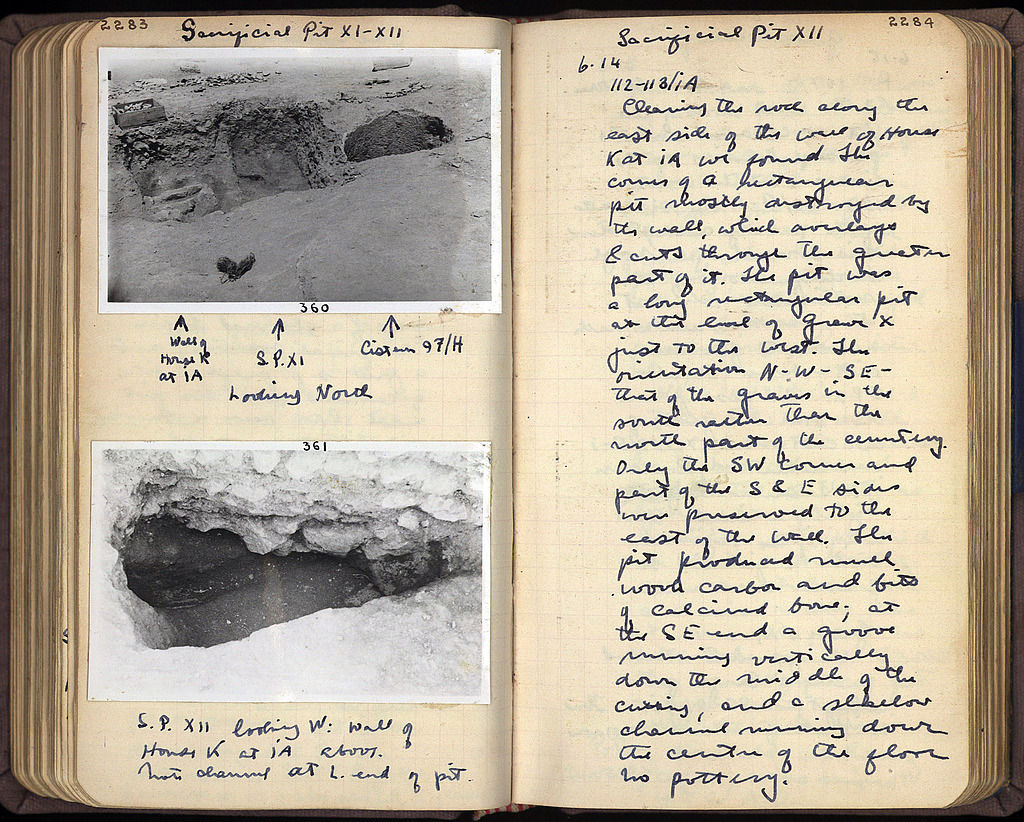 2283
Sacrificial Pit XI-XII
360
Wall of
House K
at iA
S.P. XI
Cistern 97/H
Looking North
361
S.P. XII looking W: wall of
House K at iA above.
Note channel at L. end of pit.
2284
Sacrificial Pit XII
6.14
112-113/iA
Clearing the rock along the
east side of the wall of House
K at iA we found the
corner of a rectangular
pit mostly destroyed by
the wall, which overlays
& cuts through the greater
part of it. The pit was
a long rectangular pit
at the level of Grave X
just to the west. The
orientation N-W-SE-
that of the graves in the
south rather than the
north part of the cemetery.
Only the SW corner and
part of the S & E sides
were preserved to the
east of the wall. The
pit produced much
wood carbon and bits
of calcined bone; at
the SE end a groove
running vertically
down the middle of the
cutting, and a shallow
channel running down
the centre of the floor
No pottery.